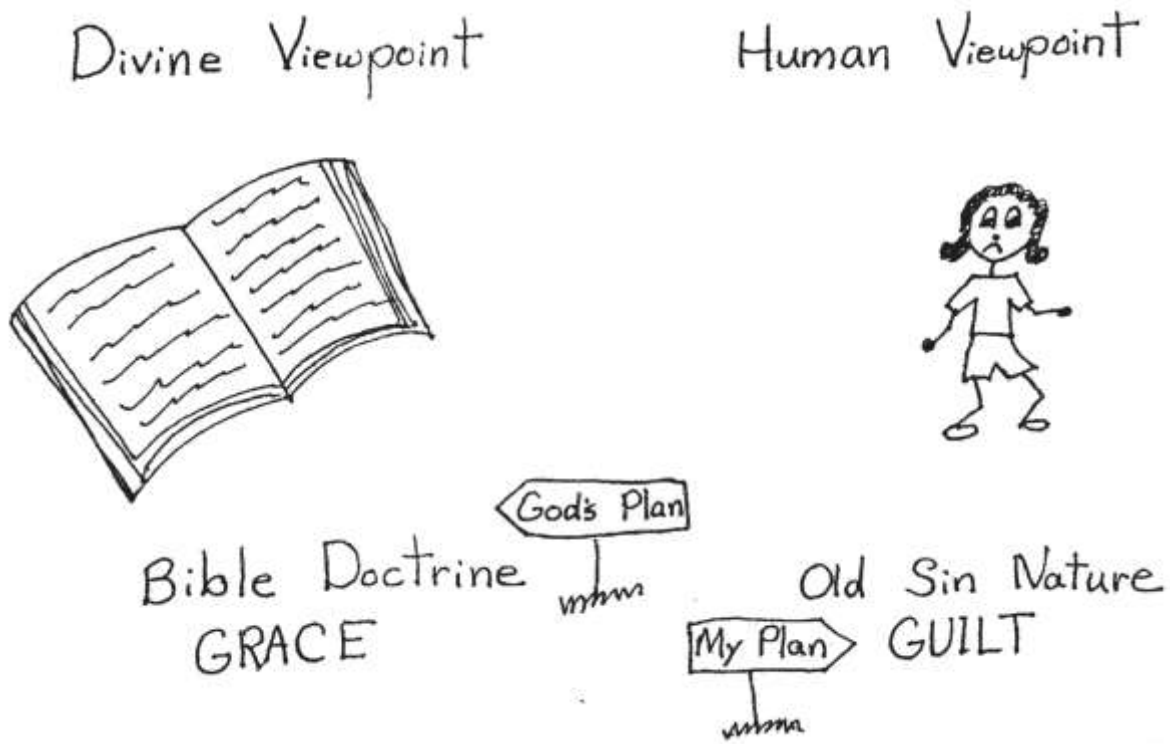 Divine Viewpoint
Human Viewpoint
God's Plan
Bible Doctrine
GRACE
Old Sin Nature
GUILT
My Plan